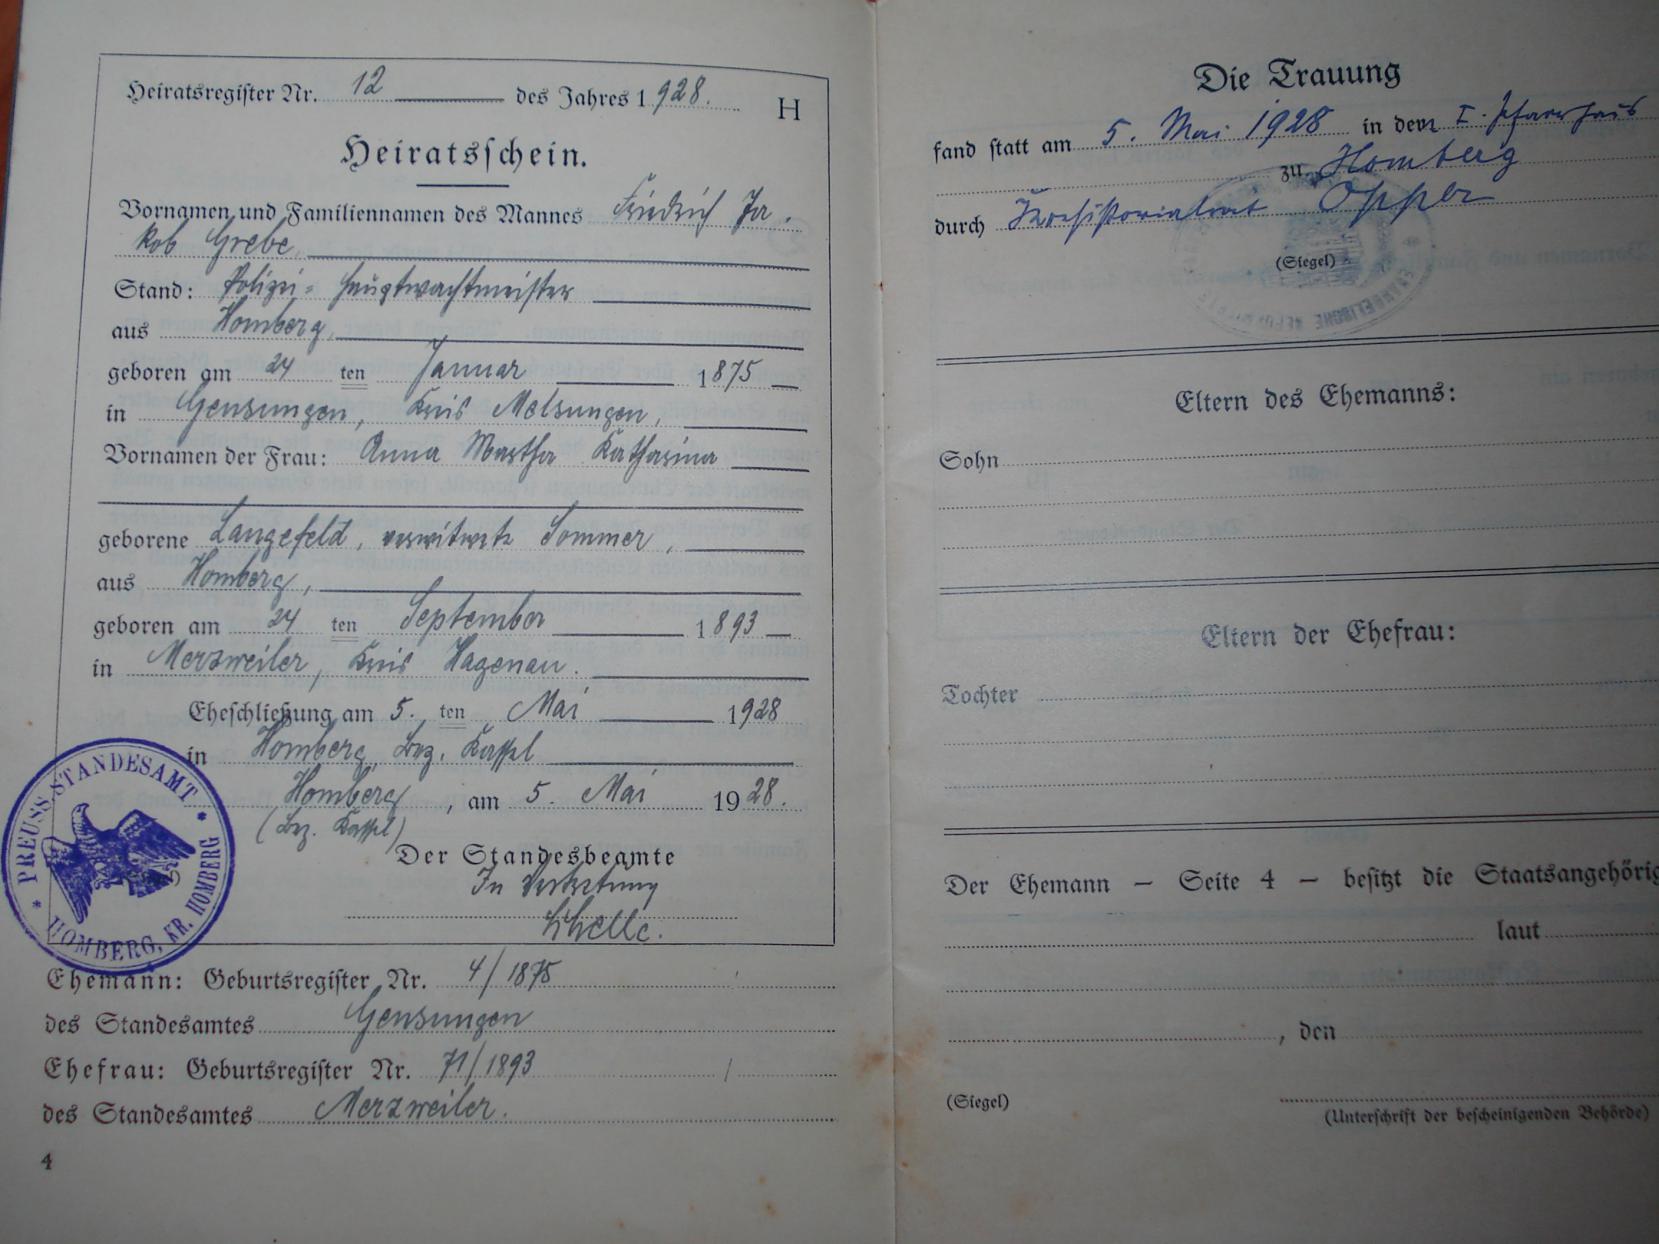 Heiratsregister Nr. 12 des Jahres 1928.
H
Heiratsschein.
Vornamen und Familiennamen des Mannes Friedrich Ja-
kob Grebe,
Stand: Polizei-Hauptwachtmeister
aus Homberg,
geboren am 24 ten Januar 1875
in Gensungen, Kreis Melsungen,
Vornamen der Frau: Anna Martha Katharina
geborene Langefeld, verwitwete Sommer,
aus Homberg,
geboren am 24 ten September 1893
in Merzweiler, Kreis Hagenau.
Eheschließung am 5. ten Mai 1928
in Homberg, Bez. Kassel
Homberg, am 5. Mai 1928.
(Bez. Kassel)
Der Standesbeamte
In Vertretung
PREUSS. STANDESAMT * HOMBERG, KR. HOMBERG *
Ehemann: Geburtsregister Nr. 4/1875
des Standesamtes Gensungen
Ehefrau: Geburtsregister Nr. 71/1893
des Standesamtes Merzweiler.
4
Die Trauung
fand statt am 5. Mai 1928 in dem I. Pfarrhaus
zu Homberg
durch Konsistorialrat Opper
(Siegel)
EVANGELISCHE REFORMIERTE
Eltern des Ehemanns:
Sohn
Eltern der Ehefrau:
Tochter
Der Ehemann — Seite 4 — besitzt die Staatsangehörig
laut
, den
(Siegel)
(Unterschrift der bescheinigenden Behörde)